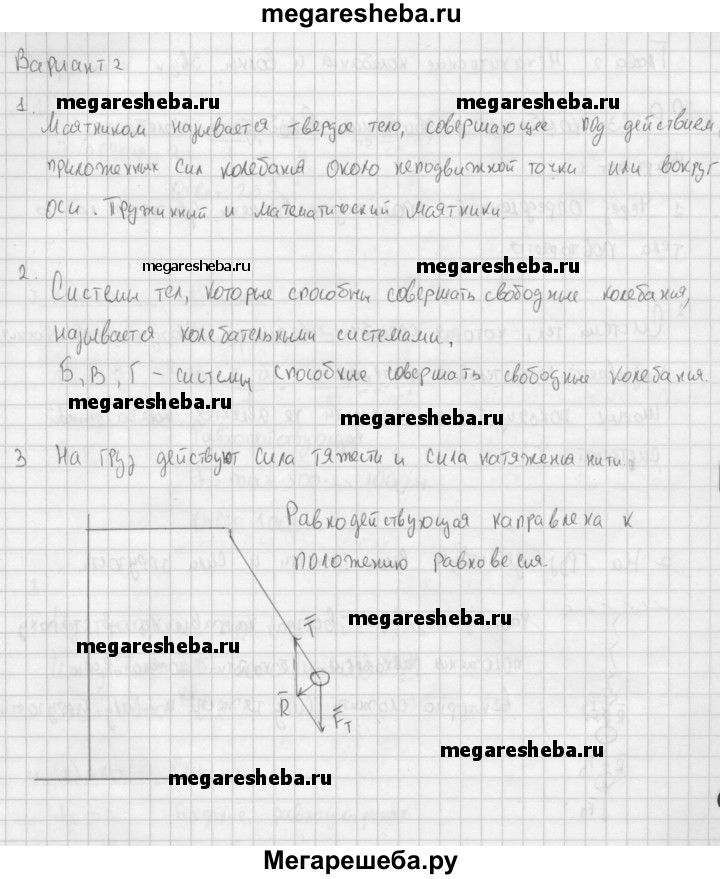 megaresheba.ru
Вариант 2
1.
megaresheba.ru megaresheba.ru
Маятником называется твердое тело, совершающее под действием
приложенных сил колебания около неподвижной точки или вокруг
оси. Пружинный и математический маятники.
megaresheba.ru megaresheba.ru
2. Системы тел, которые способны совершать свободные колебания,
называется колебательными системами,
Б, В, Г – системы способные совершать свободные колебания.
megaresheba.ru megaresheba.ru
3 На груз действуют сила тяжести и сила натяжения нити.
megaresheba.ru
Равнодействующая направлена к
положению равновесия.
megaresheba.ru
T
megaresheba.ru
R
F т
megaresheba.ru
megaresheba.ru
Мегарешеба.ру